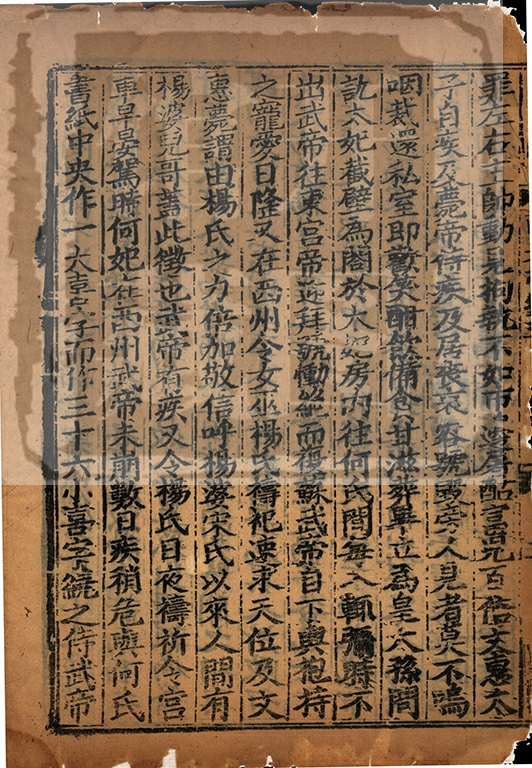 罪左右主帥動見拘執不如市邊屠酤富兒百倍文惠太
子自疾及薨帝侍疾及居喪哀容號毀旁人見者莫不嗚
咽裁還私室即歡笑酣飲備食甘滋葬畢立為皇太孫問
訊太妃截壁為閤於太妃房內往何氏間每入輒彌時不
出武帝往東宮帝迎拜號慟絕而復蘇武帝自下輿抱持
之寵愛日隆又在西州令女巫楊氏禱祀速求天位及文
惠薨謂由楊氏之力倍加敬信呼楊婆宋氏以來人間有
楊婆兒哥蓋此徵也武帝有疾又令楊氏日夜禱祈令宮
車早晏駕時何妃在西州武帝未崩數日疾稍危與何氏
書紙中央作一大喜字而作三十六小喜字繞之侍武帝